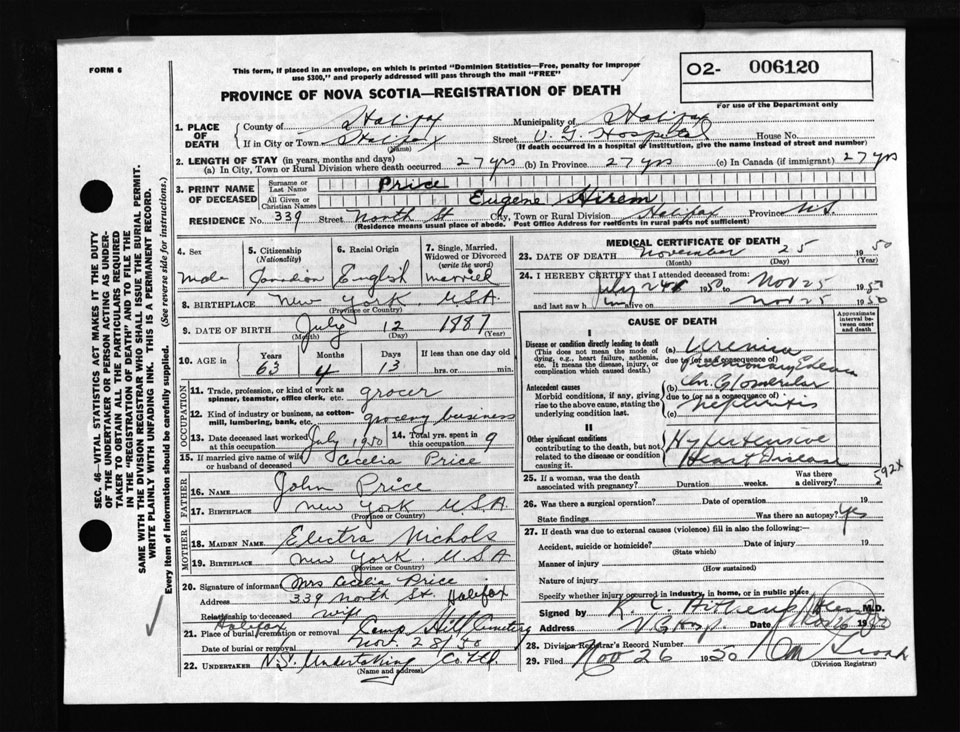 FORM 6
This form, if placed in an envelope, on which is printed "Dominion Statistics—Free, penalty for improper
use $300," and properly addressed will pass through the mail "FREE"
O2- 006120
PROVINCE OF NOVA SCOTIA—REGISTRATION OF DEATH
For use of the Department only
1. PLACE OF DEATH
County of Halifax Municipality of Halifax
If in City or Town Halifax Street V. G. Hospital House No.
(Name) (If death occurred in a hospital or institution, give the name instead of street and number)
2. LENGTH OF STAY (in years, months and days)
(a) In City, Town or Rural Division where death occurred 27 yrs (b) In Province 27 yrs (c) In Canada (if immigrant) 27 yrs
3. PRINT NAME OF DECEASED
Surname or Last Name Price
All Given or Christian Names Eugene Hirem
RESIDENCE No. 339 Street North St City, Town or Rural Division Halifax Province N.S.
(Residence means usual place of abode. Post Office Address for residents in rural parts not sufficient)
4. Sex
male
5. Citizenship (Nationality)
Canadian
6. Racial Origin
English
7. Single, Married, Widowed or Divorced (write the word)
married
8. BIRTHPLACE New York U.S.A
(Province or Country)
9. DATE OF BIRTH July 12 1887
(Month) (Day) (Year)
10. AGE in Years Months Days If less than one day old
63 4 13 hrs. or min.
OCCUPATION
11. Trade, profession, or kind of work as spinner, teamster, office clerk, etc. grocer
12. Kind of industry or business, as cotton-mill, lumbering, bank, etc. grocery business
13. Date deceased last worked at this occupation July 1950 14. Total yrs. spent in this occupation 9
15. If married give name of wife or husband of deceased Cecelia Price
FATHER
16. NAME John Price
17. BIRTHPLACE New York U.S.A.
(Province or Country)
MOTHER
18. MAIDEN NAME Electra Nichols
19. BIRTHPLACE New York U.S.A
(Province or Country)
20. Signature of informant Mrs Cecelia Price
Address 339 North St. Halifax
Relationship to deceased wife
Halifax
21. Place of burial, cremation or removal Camp Hill Cemetery
Date of burial or removal Nov. 28/50
22. UNDERTAKER N.S. Undertaking Co. Ltd.
(Name and address)
MEDICAL CERTIFICATE OF DEATH
23. DATE OF DEATH November 25 1950
(Month) (Day) (Year)
24. I HEREBY CERTIFY that I attended deceased from:
July 24 1950 to Nov 25 1950
and last saw him on Nov 25 1950
CAUSE OF DEATH
Approximate interval between onset and death
I
Disease or condition directly leading to death
(This does not mean the mode of dying, e.g., heart failure, asthenia, etc. It means the disease, injury, or complication which caused death.)
(a) Uremia
due to (or as consequence of)
Pulmonary Edema
Antecedent causes
Morbid conditions, if any, giving rise to the above cause, stating the underlying condition last.
(b) Chr. Glomerular
due to (or as consequence of)
(c) Nephritis
II
Other significant conditions
contributing to the death, but not related to the disease or condition causing it.
Hypertensive
Heart Disease
592x
25. If a woman, was the death associated with pregnancy? Duration weeks. Was there a delivery?
26. Was there a surgical operation? Date of operation 19
State findings Was there an autopsy? Yes
27. If death was due to external causes (violence) fill in also the following:—
Accident, suicide or homicide? Date of injury 19
(State which)
Manner of injury
(How sustained)
Nature of injury
Specify whether injury occurred in industry, in home, or in public place
Signed by M.D.
Address V G Hosp. Date Nov 26 1950
28. Division Registrar's Record Number
29. Filed Nov 26 1950
(Division Registrar)
SEC. 46—VITAL STATISTICS ACT MAKES IT THE DUTY
OF THE UNDERTAKER OR PERSON ACTING AS UNDER-
TAKER TO OBTAIN ALL THE PARTICULARS REQUIRED
IN THE "REGISTRATION OF DEATH" AND TO FILE THE
SAME WITH THE DIVISION REGISTRAR WHO SHALL ISSUE THE BURIAL PERMIT.
WRITE PLAINLY WITH UNFADING INK. THIS IS A PERMANENT RECORD.
Every item of information should be carefully supplied. (See reverse side for instructions.)